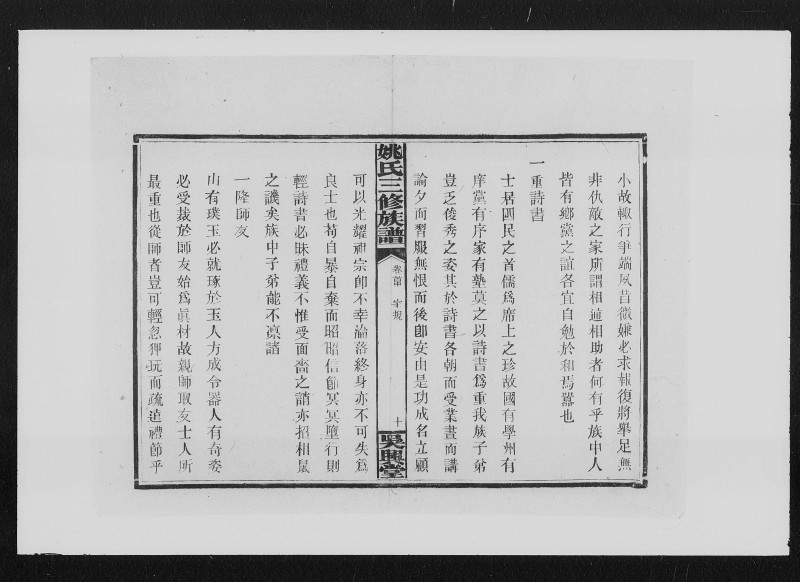 小故輙行爭端夙昔微嫌必求報復將舉足無
非仇敵之家所謂相逋相助者何有乎族中人
皆有鄉黨之誼各宜自勉於和焉囂也
一重詩書
士居四民之首儒爲席上之珍故國有學州有
庠黨有序家有塾莫之以詩書爲重我族子弟
豈乏俊秀之姿其於詩書各朝而受業晝而講
論夕而習服無恨而後卽安由是功成名立顯
姚氏三修族譜
卷首 宗規
十
吳興堂
可以光耀祖宗卽不幸淪落終身亦不可失爲
良士也苟自暴自棄而昭昭信節冥冥墮行則
輕詩書必昧禮義不惟受面牆之誚亦招相鼠
之譏矣族中子弟能不凛諸
一隆師友
山有璞玉必就琢於玉人方成令器人有奇姿
必受裁於師友始爲眞材故親師取友士人所
最重也從師者豈可輕忽狎玩而疏遠禮節乎